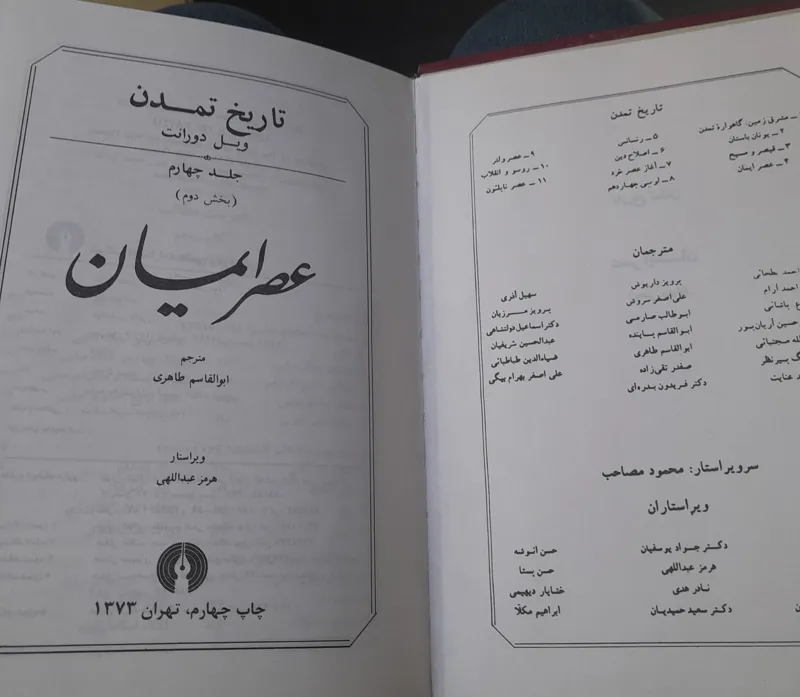 تاریخ تمدن
ـ مشرق زمین: گاهوارهٔ تمدن
۲ ـ یونان باستان
۳ ـ قیصر و مسیح
۴ ـ عصر ایمان
۵ ـ رنسانس
۶ ـ اصلاح دین
۷ ـ آغاز عصر خرد
۸ ـ لویی چهاردهم
۹ ـ عصر ولتر
۱۰ ـ روسو و انقلاب
۱۱ ـ عصر ناپلئون
مترجمان
احمد بطحائی
احمد آرام
پاشائی
حسین آریان‌پور
مجتبائی
پیرنظر
عنایت
پرویز داریوش
علی‌اصغر سروش
ابوطالب صارمی
ابوالقاسم پاینده
ابوالقاسم طاهری
صفدر تقی‌زاده
دکتر فریدون بدره‌ای
سهیل آذری
پرویز مرزبان
دکتر اسماعیل دولتشاهی
عبدالحسین شریفیان
ضیاءالدین طباطبائی
علی‌اصغر بهرام بیگی
سرویراستار: محمود مصاحب
ویراستاران
دکتر جواد یوسفیان
هرمز عبداللهی
نادر هدی
دکتر سعید حمیدیان
حسن انوشه
حسن پستا
خشایار دیهیمی
ابراهیم مکلا
تاریخ تمدن
ویل دورانت
جلد چهارم
(بخش دوم)
عصر ایمان
مترجم
ابوالقاسم طاهری
ویراستار
هرمز عبداللهی
چاپ چهارم، تهران ۱۳۷۳